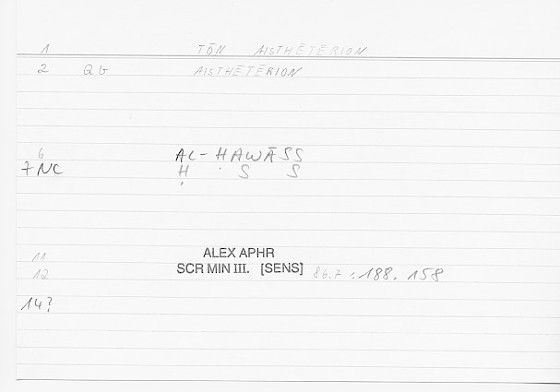 1 TŌN AISTHĒTĒRIŌN
2 QG AISTHĒTĒRION
6 AL-HAWĀSS
7 NC Ḥ S S
11 ALEX APHR
12 SCR MIN III. [SENS] 86.7 : 188.158
14?